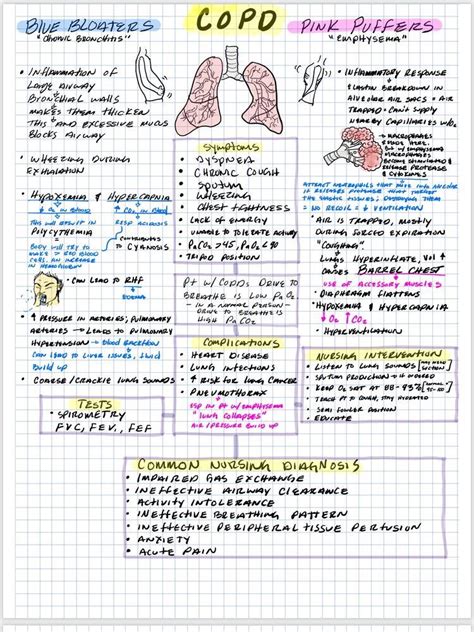 COPD
BLUE BLOATERS
"CHRONIC BRONCHITIS"
• INFLAMMATION OF
LARGE AIRWAY
BRONCHIAL WALLS
MAKES THEM THICKEN
THIS AND EXCESSIVE MUCUS
BLOCKS AIRWAY
• WHEEZING DURING
EXHALATION
• HYPOXEMIA & HYPERCAPNIA
↓ O₂ IN BLOOD
↑ CO₂ IN BLOOD
THIS WILL RESULT IN
POLYCYTHEMIA
RESP ACIDOSIS
BODY WILL TRY TO
MAKE ↑ RED BLOOD
CELL, AN INCREASE
IN HEMOGLOBIN
CONTRIBUTES
TO CYANOSIS
• CAN LEAD TO RHF
EDEMA
• ↑ PRESSURE IN ARTERIES; PULMONARY
ARTERIES → LEADS TO PULMONARY
HYPERTENSION → BLOOD BACKFLOW
CAN LEAD TO LIVER ISSUES, FLUID
BUILD UP
• COARSE/CRACKLE LUNG SOUNDS
TESTS
• SPIROMETRY
FVC, FEV, FEF
SYMPTOMS
• DYSPNEA
• CHRONIC COUGH
• SPUTUM
• WHEEZING
• CHEST TIGHTNESS
• LACK OF ENERGY
• UNABLE TO TOLERATE ACTIVITY
• PaCO₂ >45, PaO₂ <90
• TRIPOD POSITION
PT W/ COPDS DRIVE TO
BREATHE IS LOW PaO₂
IN A NORMAL PERSON
DRIVE TO BREATHE IS
HIGH PaCO₂
COMPLICATIONS
• HEART DISEASE
• LUNG INFECTIONS
• ↑ RISK FOR LUNG CANCER
• PNEUMOTHORAX
ESP IN PT W/ EMPHYSEMA
"LUNG COLLAPSES"
AIR/PRESSURE BUILD UP
PINK PUFFERS
"EMPHYSEMA"
• INFLAMMATORY RESPONSE
ELASTIN BREAKDOWN IN
ALVEOLAR AIR SACS + AIR
TRAPPED → CAN'T SUPPLY
NEARBY CAPILLARIES W/ O₂
MACROPHAGES
RELEASE PROTEASE
& CYTOKINES
• AIR IS TRAPPED, MOSTLY
DURING FORCED EXPIRATION
"COUGHING"
• LUNGS HYPERINFLATE, VOL ↑
CAUSES BARREL CHEST
• USE OF ACCESSORY MUSCLES
• DIAPHRAGM FLATTENS
• HYPOXEMIA & HYPERCAPNIA
↓ O₂ ↑ CO₂
HYPERVENTILATION
NURSING INTERVENTION
• LISTEN TO LUNG SOUNDS
• SPUTUM PRODUCTION
• KEEP O₂ SAT AT 88-93%
• TEACH PT TO COUGH, STAY HYDRATED
• SEMI FOWLER POSITION
• EDUCATE
COMMON NURSING DIAGNOSIS
• IMPAIRED GAS EXCHANGE
• INEFFECTIVE AIRWAY CLEARANCE
• ACTIVITY INTOLERANCE
• INEFFECTIVE BREATHING PATTERN
• INEFFECTIVE PERIPHERAL TISSUE PERFUSION
• ANXIETY
• ACUTE PAIN